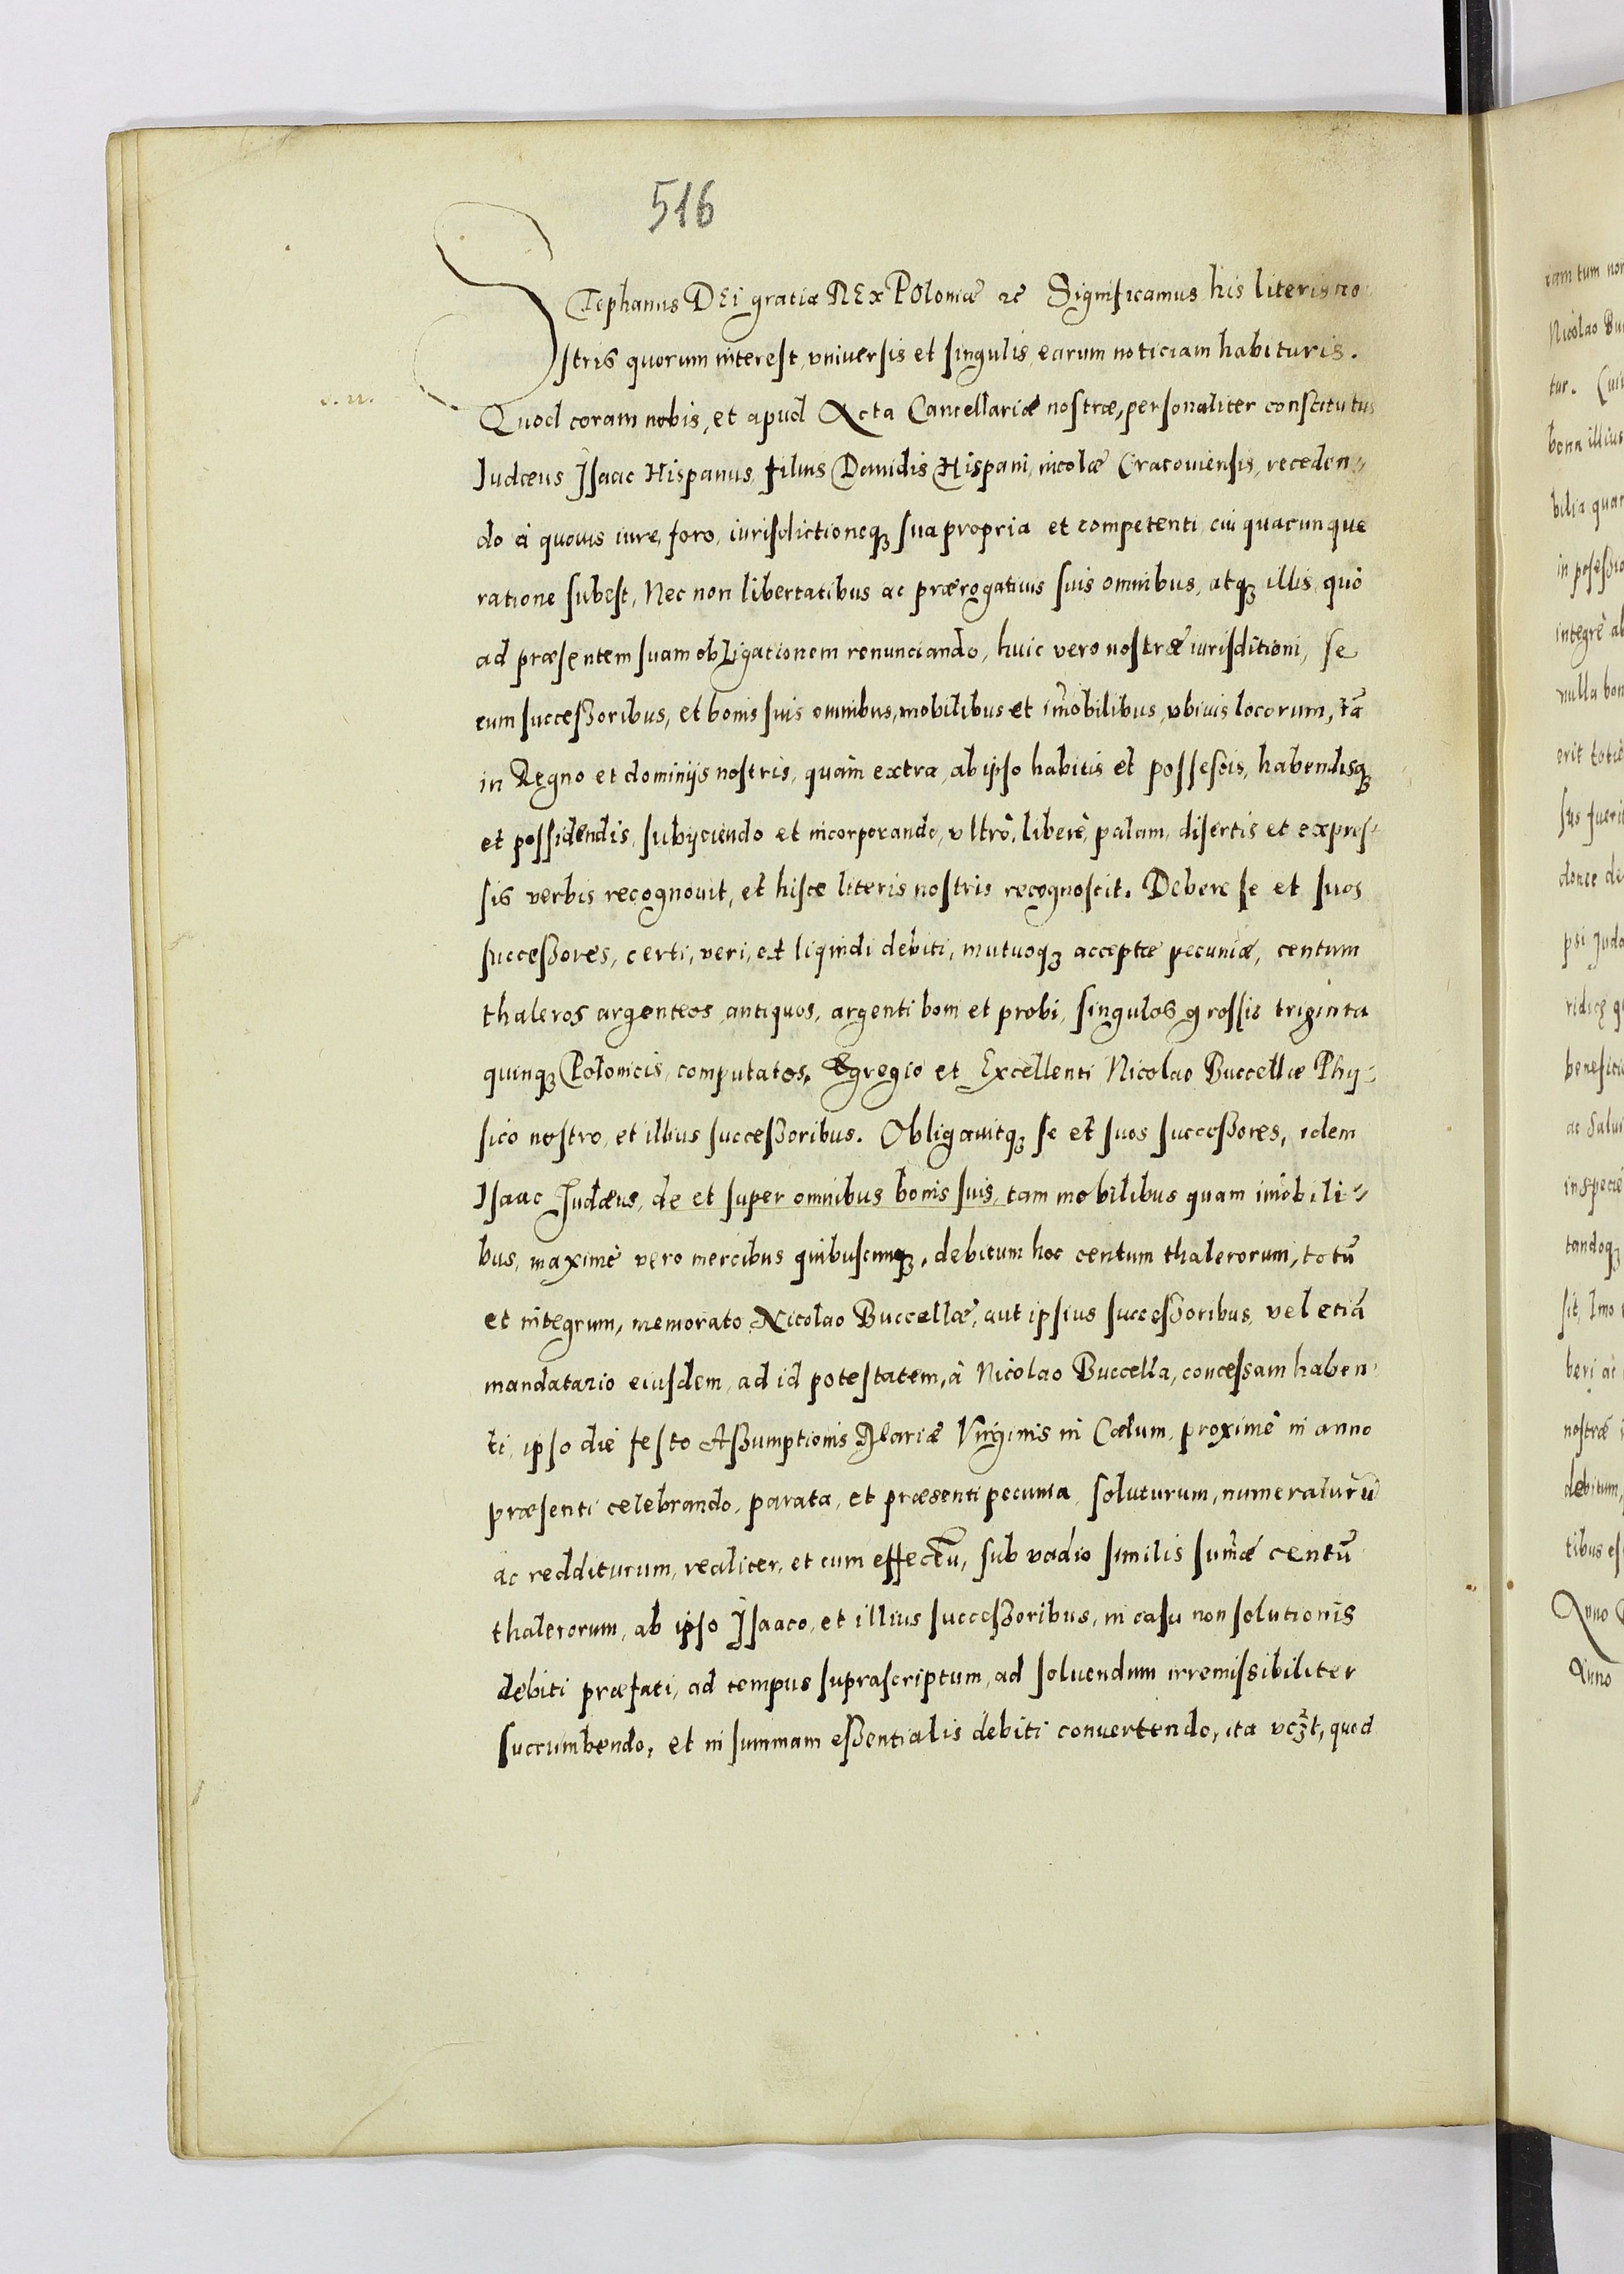 516
Stephanus DEi gratia REx POloniæ ꝛc Significamus his literis no
stris quorum interest, vniuersis et singulis, earum noticiam habituris.
Quod coram nobis, et apud Acta Cancellariæ nostræ, personaliter constitutus
Iudæus Isaac Hispanus, filius Dauidis Hispani, incolæ Cracouiensis, receden⸗
do à quouis iure, foro, iurisdictioneqꝫ sua propria et competenti, cui quacunque
ratione subest, Nec non libertatibus ac prærogatiuis suis omnibus, atqꝫ illis, quò
ad præsentem suam obligationem renunciando, huic vero nostræ iurisditioni, se
cum successoribus, et bonis suis omnibus, mobilibus et im̃obilibus, vbiuis locorum, tã
in Regno et dominijs nostris, quàm extra, ab ipso habitis et possessis, habendisqꝫ
et possidendis, subijciendo et incorporando, vltrò, liberè, palam, disertis et expres⸗
sis verbis recognouit, et hisce literis nostris recognoscit. Debere se et suos
successores, certi, veri, et liquidi debiti, mutuoqꝫ acceptæ pecuniæ, centum
thaleros argenteos antiquos, argenti boni et probi, singulos grossis triginta
quinqꝫ Polonicis, computatos, Egregio et Excellenti Nicolao Buccellæ Phy⸗
sico nostro, et illius successoribus. Obligauitqꝫ se et suos successores, idem
Isaac Iudæus, de et super omnibus bonis suis, tam mobilibus quam im̃obili⸗
bus, maximè vero mercibus quibuscunqꝫ, debitum hoc centum thalerorum, totũ
et integrum, memorato Nicolao Buccellæ, aut ipsius successoribus, vel etiã
mandatario eiusdem, ad id potestatem, à Nicolao Buccella, concessam haben⸗
ti, ipso die festo Assumptionis Mariæ Virginis in Cælum, proximè in anno
præsenti celebrando, parata, et præsenti pecunia, soluturum, numeraturũ
ac redditurum, realiter, et cum effectu, sub vadio similis sum̃æ centũ
thalerorum, ab ipso Isaaco, et illius successoribus, in casu non solutionis
debiti præfati, ad tempus suprascriptum, ad soluendum irremissibiliter
succumbendo, et in summam essentialis debiti conuertendo, ita vcꝫt, quod
tam tum non
Nicolao Bu
tur.
bona illius
bilia quar
in possessio
integrè ab
nulla bon
erit totie
sus fueri
donec de
psi Juda
beneficiis
ac Salui
in specie
tandoqꝫ
sit, Imo
beri ac
nostræ
debitum,
tibus es
Anno
Anno